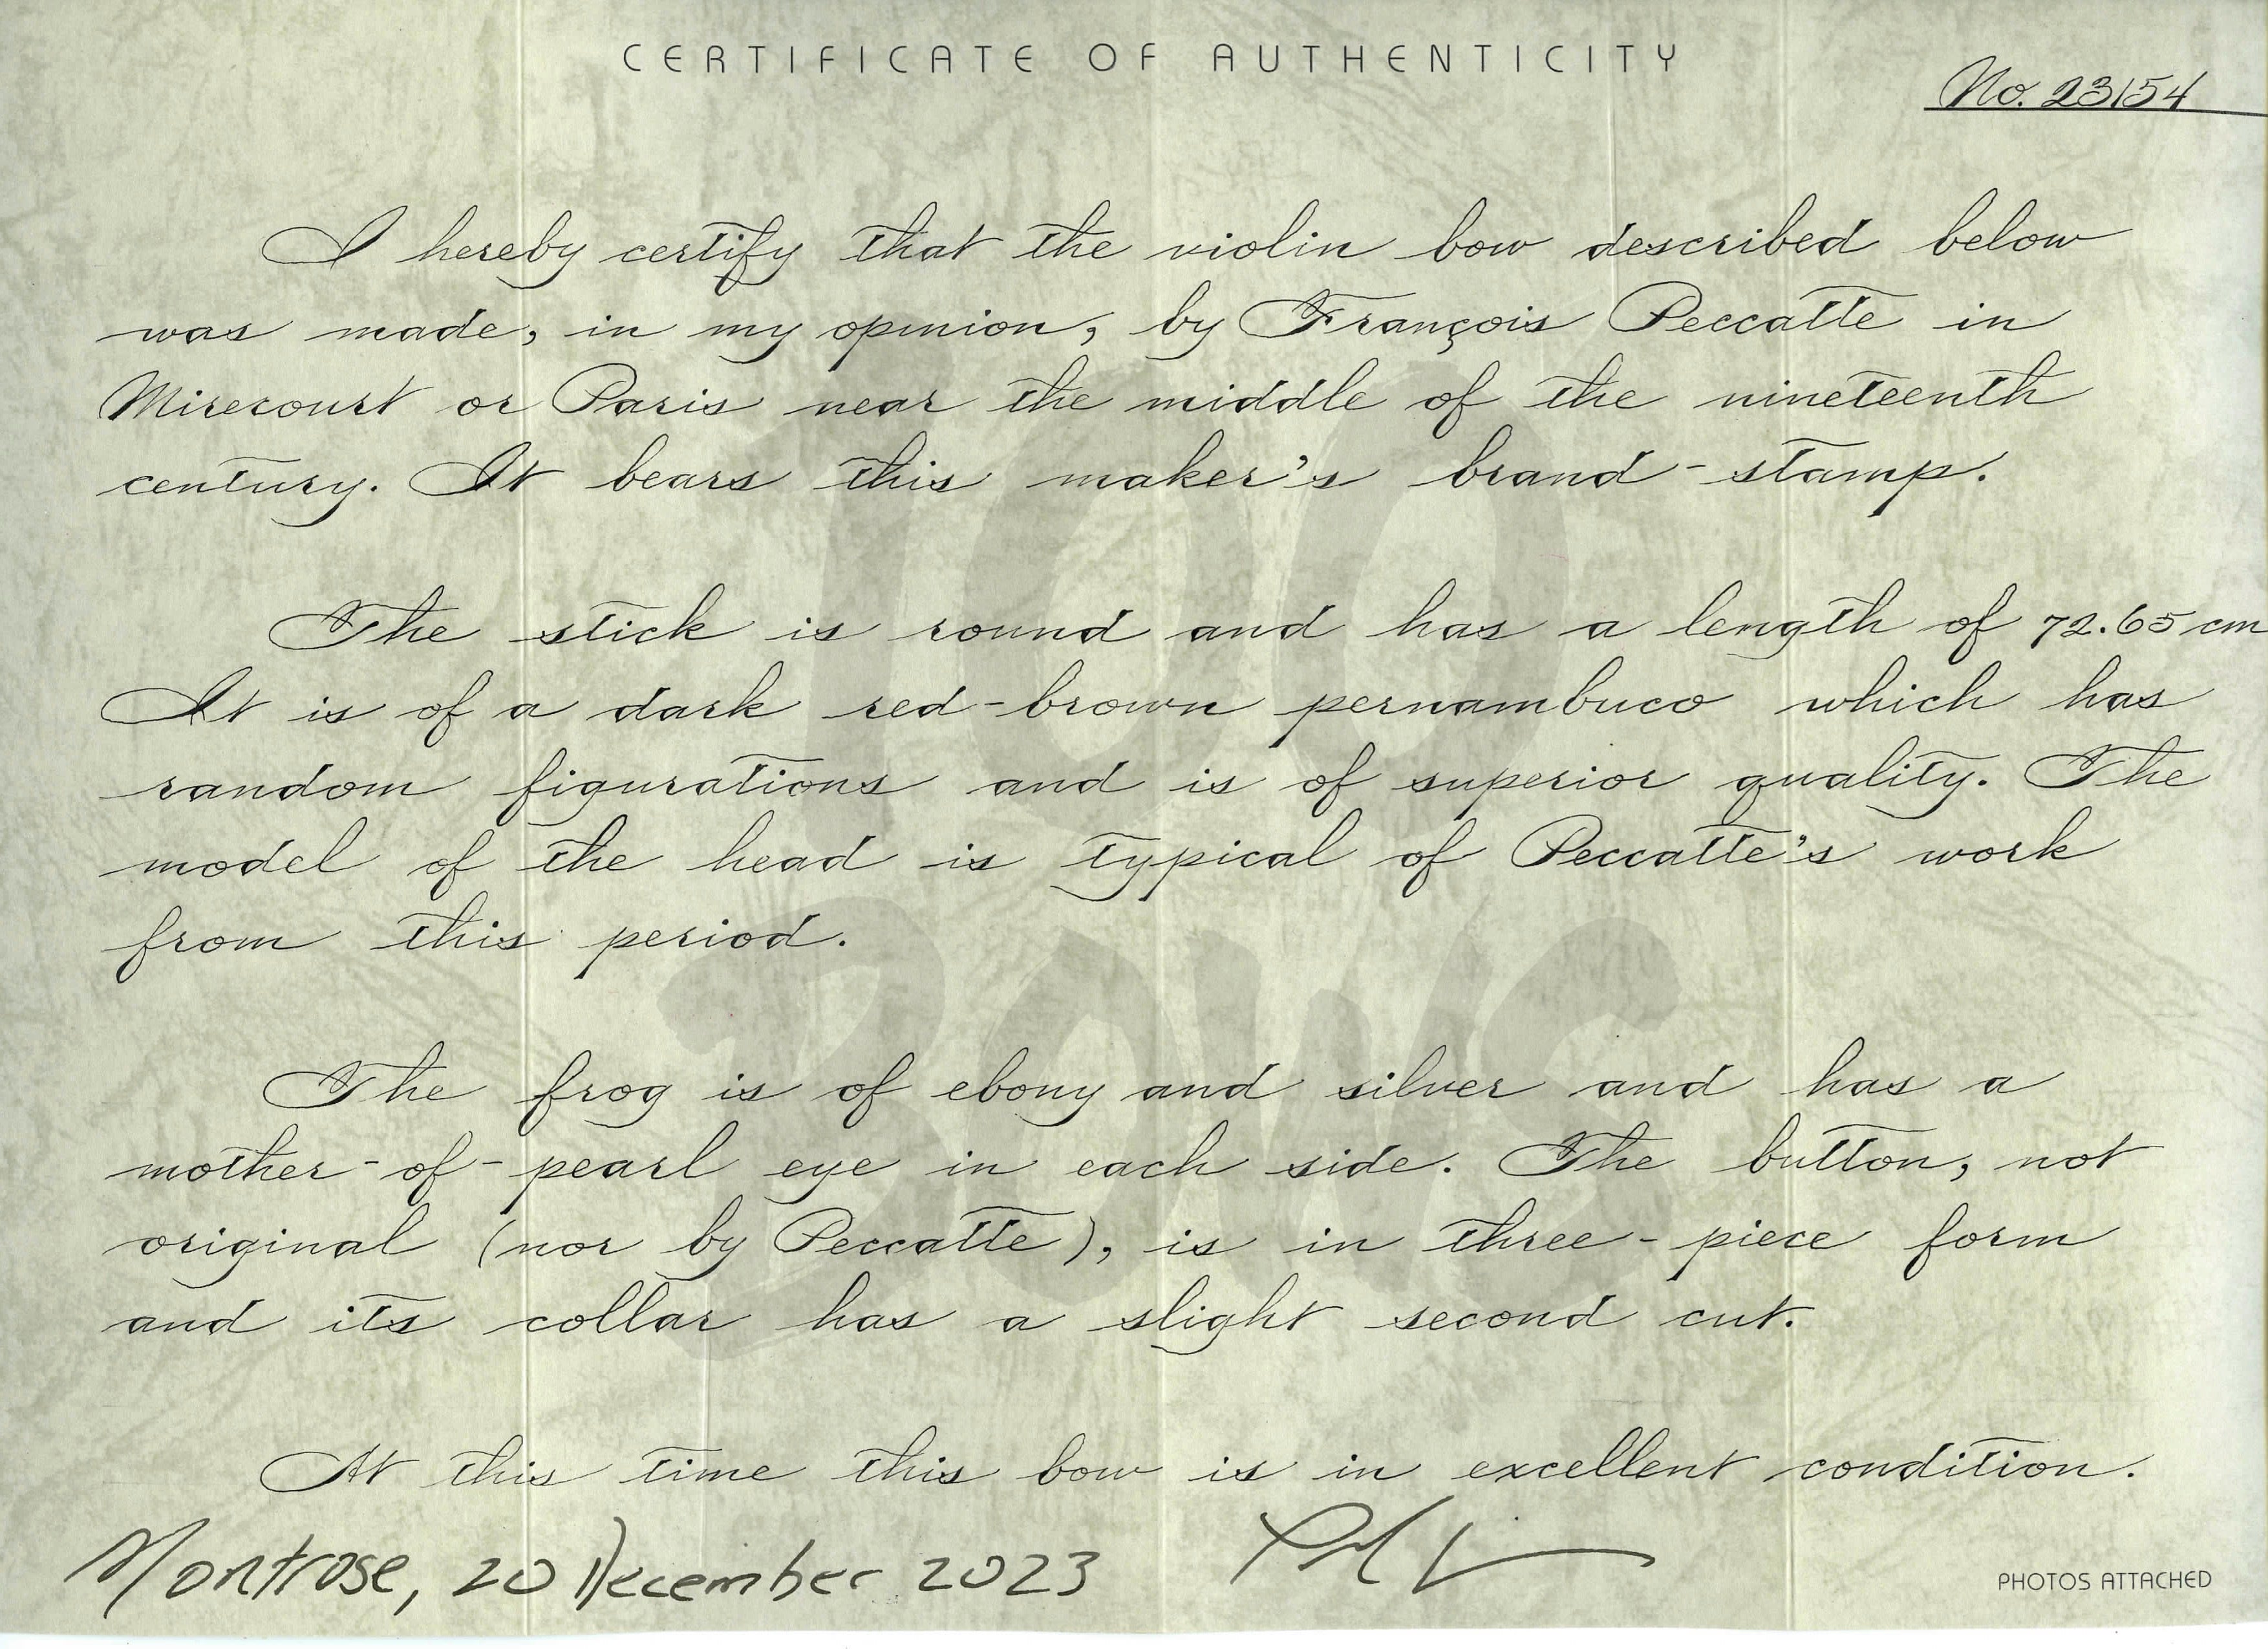 CERTIFICATE OF AUTHENTICITY
No. 23154
I hereby certify that the violin bow described below
was made, in my opinion, by François Peccatte in
Mirecourt or Paris near the middle of the nineteenth
century. It bears this maker's brand-stamp.
The stick is round and has a length of 72.65 cm
It is of a dark red-brown pernambuco which has
random figurations and is of superior quality. The
model of the head is typical of Peccatte's work
from this period.
The frog is of ebony and silver and has a
mother-of-pearl eye in each side. The button, not
original (nor by Peccatte), is in three-piece form
and its collar has a slight second cut.
At this time this bow is in excellent condition.
Montrose, 20 December 2023
PHOTOS ATTACHED
100
BOWS